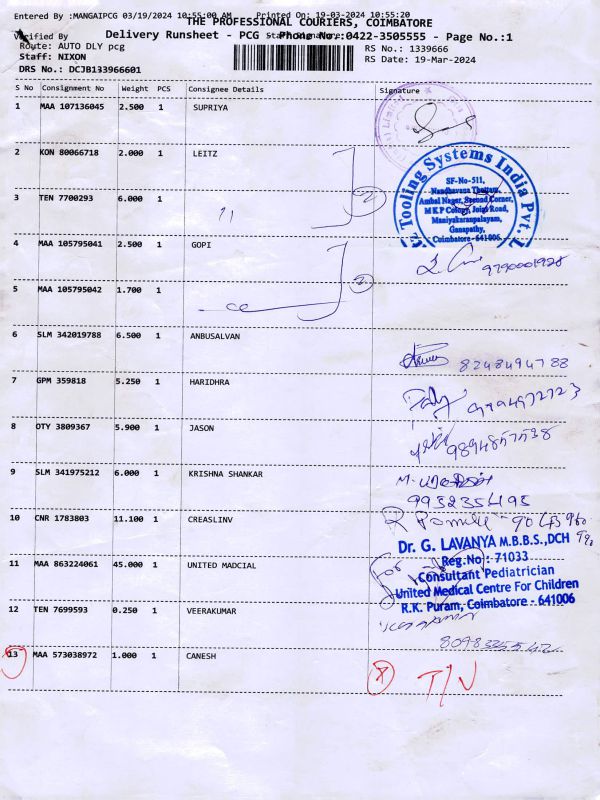 Entered By :MANGAIPCG 03/19/2024 10:55:00 AM Printed On: 19-03-2024 10:55:20
THE PROFESSIONAL COURIERS, COIMBATORE
Verified By
Delivery Runsheet - PCG - Phone No.:0422-3505555 - Page No.:1
Staff Signature
Route: AUTO DLY pcg
RS No.: 1339666
Staff: NIXON
RS Date: 19-Mar-2024
DRS No.: DCJB133966601
S No Consignment No Weight PCS Consignee Details Signature
1 MAA 107136045 2.500 1 SUPRIYA
2 KON 80066718 2.000 1 LEITZ
Tooling Systems India Pvt.
SF-No-511,
Nandhavana Thottam,
Ambal Nagar, Second Corner,
M K P Colony, Joigi Road,
Maniyakaranpalayam,
Ganapathy,
Coimbatore-641006.
3 TEN 7700293 6.000 1
11
2
4 MAA 105795041 2.500 1 GOPI
9790001928
2
5 MAA 105795042 1.700 1
6 SLM 342019788 6.500 1 ANBUSALVAN
8248494788
7 GPM 359818 5.250 1 HARIDHRA
9794972723
8 OTY 3809367 5.900 1 JASON
9894857538
9 SLM 341975212 6.000 1 KRISHNA SHANKAR
9932354195
10 CNR 1783803 11.100 1 CREASLINV
Dr. G. LAVANYA M.B.B.S.,DCH
Reg.No : 71033
Consultant Pediatrician
United Medical Centre For Children
R.K. Puram, Coimbatore - 641006
For
11 MAA 863224061 45.000 1 UNITED MADCIAL
12 TEN 7699593 0.250 1 VEERAKUMAR
13 MAA 573038972 1.000 1 CANESH
T/N